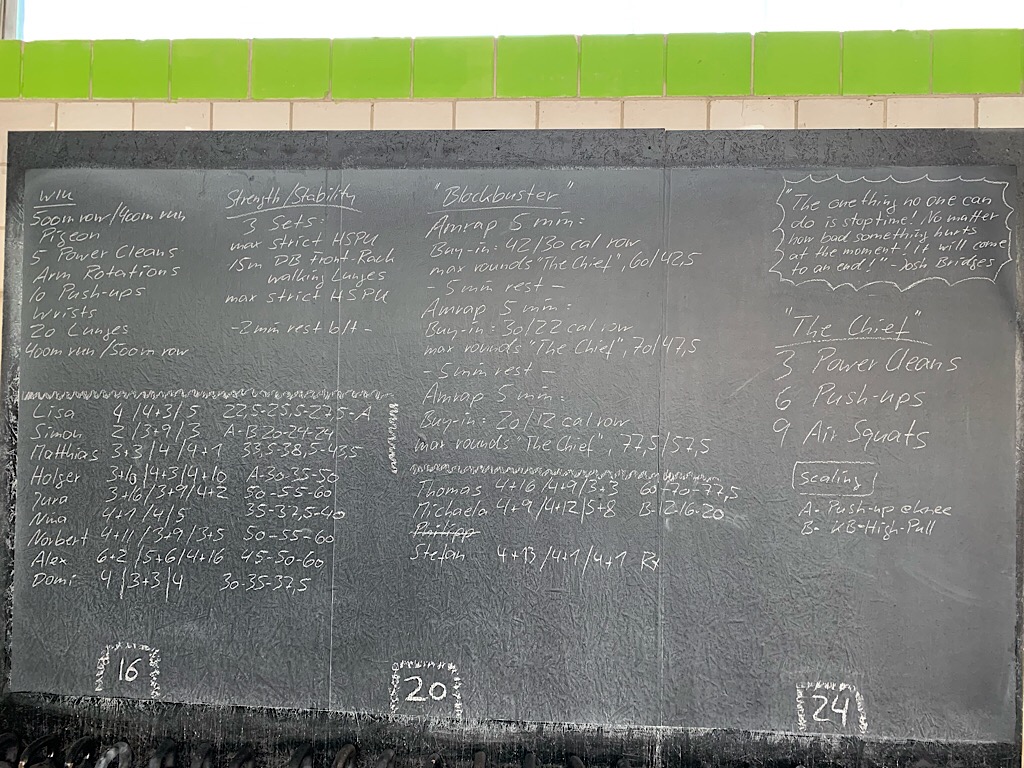 WU
500m row/400m run
Pigeon
5 Power Cleans
Arm Rotations
10 Push-ups
Wrists
20 Lunges
400m run/500m row
Strength/Stability
3 Sets:
max strict HSPU
15m DB Front-Rack
walking Lunges
max strict HSPU
-2min rest b/t-
"Blockbuster"
Amrap 5 min:
Buy-in: 42/30 cal row
max rounds "The Chief", 60/42,5
- 5min rest -
Amrap 5 min:
Buy-in: 30/22 cal row
max rounds "The Chief", 70/47,5
- 5min rest -
Amrap 5 min:
Buy-in: 20/12 cal row
max rounds "The Chief", 77,5/57,5
"The one thing no one can
do is stop time! No matter
how bad something hurts
at the moment! It will come
to an end!" - Josh Bridges
"The Chief"
3 Power Cleans
6 Push-ups
9 Air Squats
Scaling
A- Push-up
B- KB-High-Pull
Lisa 4/4+3/5 22,5-25,5-27,5-A
Simon 2/3+9/3 A-B-20-24-24
Matthias 3+3/4/4+1 33,5-38,5-43,5
Holger /4+3/4+10 A-30-35-50
Jura 3+6/3+9/4+2 50-55-60
Nina 4+1/4/5 35-37,5-40
Norbert 4+11/3+9/3+5 50-55-60
Alex 6+2/5+6/4+16 45-50-60
Domi 4/3+3/4 30-35-37,5
Thomas 4+16/4+9/3+3 60-70-77,5
Michaela 4+9/4+12/5+8 B-
Philipp
Stefan 4+13/4+1/4+1 Rx
16
20
24